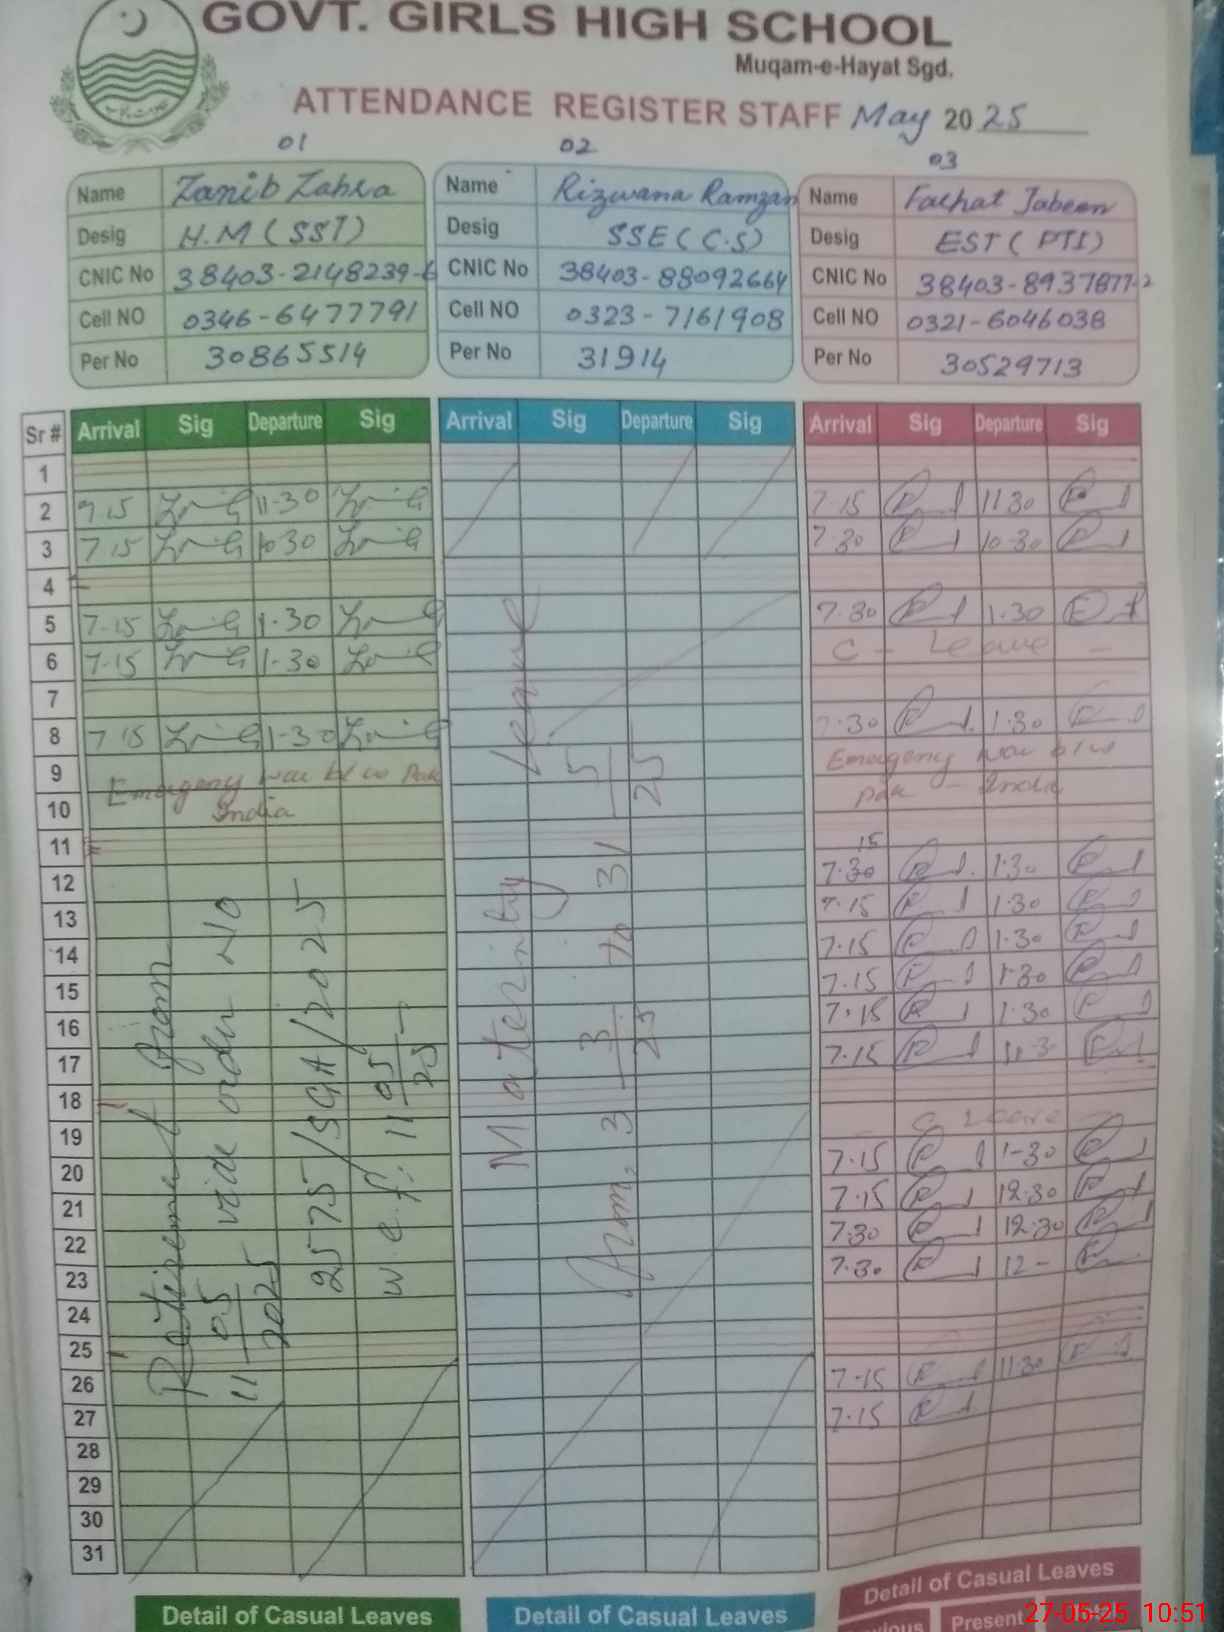 GOVT. GIRLS HIGH SCHOOL
Muqam-e-Hayat Sgd.
ATTENDANCE REGISTER STAFF May 2025
01 02 03
Name Zanib Zahra
Desig H.M (SST)
CNIC No 38403-2148239-6
Cell NO 0346-6477791
Per No 30865514
Name Rizwana Ramzan
Desig SSE (C.S)
CNIC No 38403-88092664
Cell NO 0323-7161908
Per No 31914
Name Farhat Jabeen
Desig EST (PTI)
CNIC No 38403-8937877-2
Cell NO 0321-6046038
Per No 30529713
Sr # Arrival Sig Departure Sig Arrival Sig Departure Sig Arrival Sig Departure Sig
1
2 7.15 11.30 7.15 11.30
3 7.15 10.30 7.30 10.30
4
5 7.15 1.30 7.30 1.30
6 7.15 1.30 C - Leave -
7
8 7.15 1.30 7.30 1.30
9 Emergency war b/w Pak Emergency war b/w
10 India Pak - India
11
12 7.30 15 1.30
13 7.15 1.30
14 7.15 1.30
15 7.15 1.30
16 7.15 1.30
17 7.15
18
19 C Leave
20 7.15 1-30
21 7.15 12.30
22 7.30 12.30
23 7.30 12-
24
25
26 7.15 11.30
27 7.15
28
29
30
31
Retirement from
11 05/2025 vide order No
2575/SGA/2025
w.e.f. 11 05/25
Maternity Leave
From 3 3/25 to 31 5/25
Detail of Casual Leaves Detail of Casual Leaves Detail of Casual Leaves
Present
27-05-25 10:51